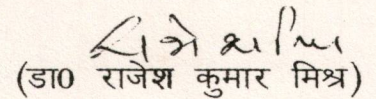 (डा0 राजेश कुमार मिश्र)